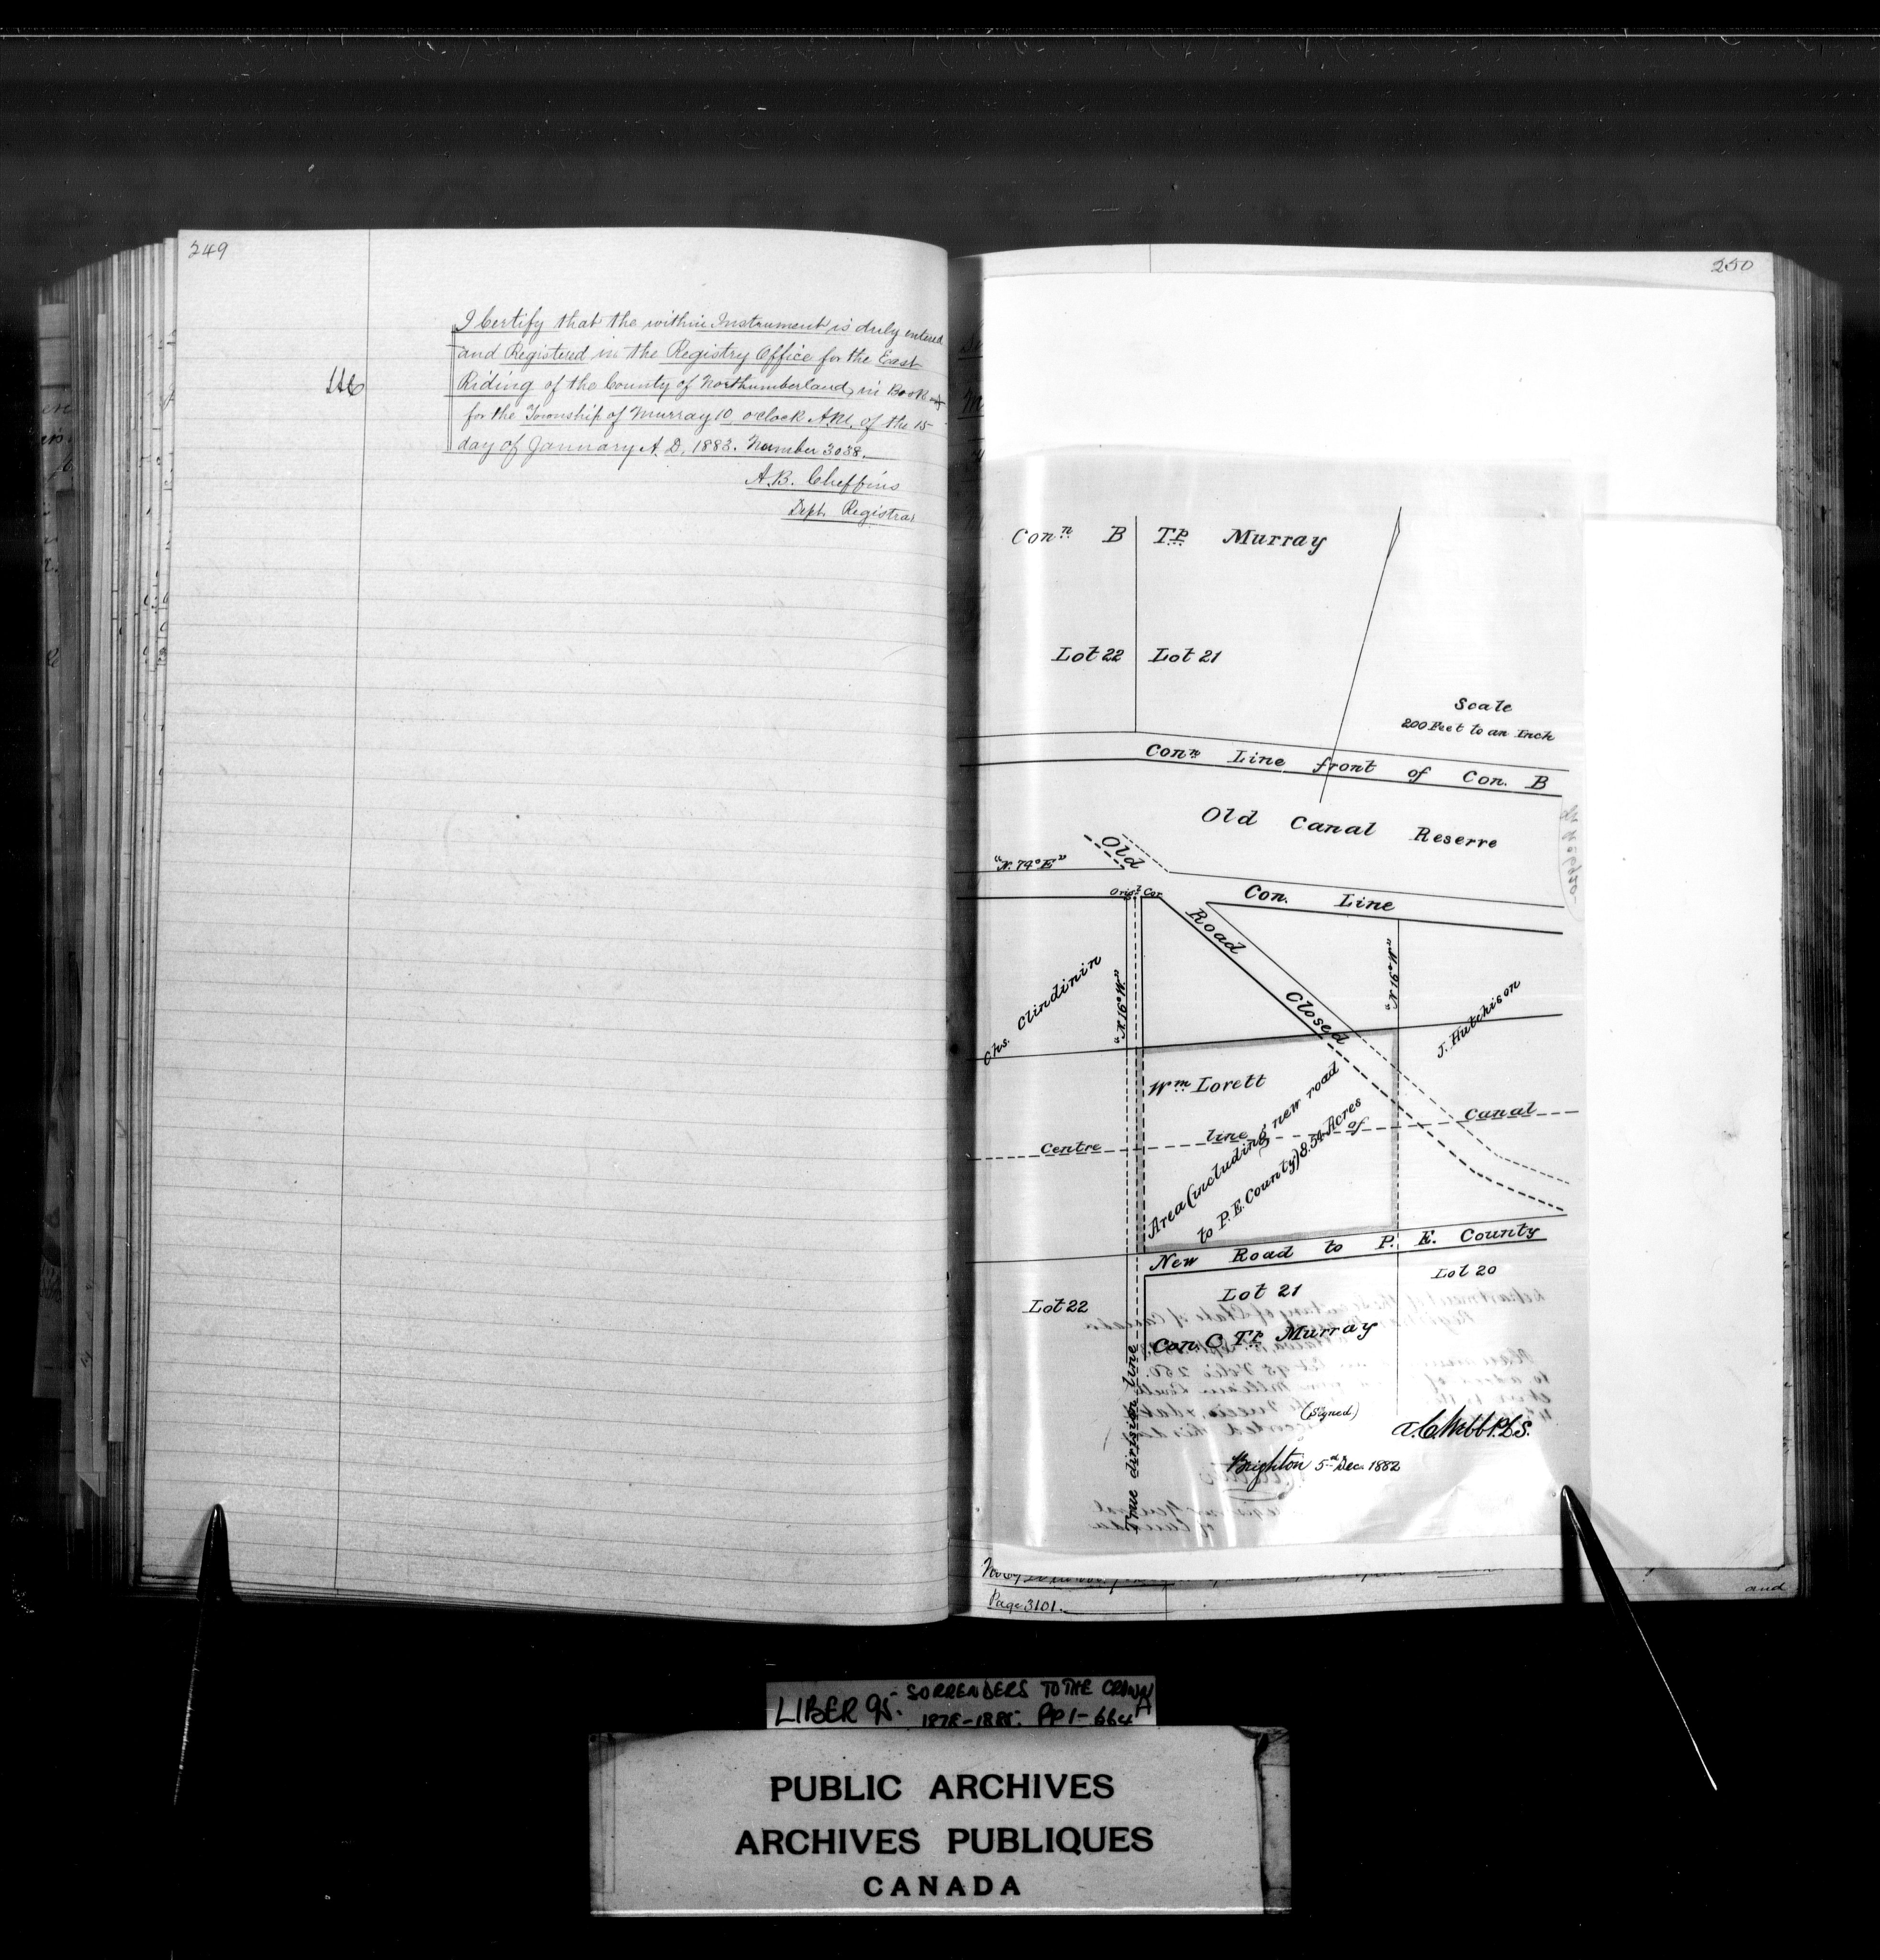 249
I Certify that the within Instrument is duly entered
and Registered in the Registry Office for the East
Riding of the County of Northumberland, in Book
for the Township of Murray 10 oclock A.M. of the 15
day of January A.D. 1883. Number 3038.
A.B. Cheffins
Dept. Registrar
250
Con.n B Tp Murray
Lot 22 Lot 21
Scale
200 Feet to an Inch
Conn Line front of Con. B
Old Canal Reserve
"N. 74° E"
Old
Orig.l Cor
Con. Line
Road Closed
Chs. Clindinin
"N 16° W"
"N 16° W"
J. Hutchison
Wm Lorett
Area (including new road
to P.E. County) 8.54 Acres
Centre line of Canal
New Road to P. E. County
Lot 22 Lot 21 Lot 20
Con. C Tp Murray
True division line
(Signed)
A.C. Webb P.L.S.
Brighton 5th Dec. 1882
Page 3101.
and
LIBER 95. SORRENDERS TO THE CROWN
1878-1885. PP 1-664A
PUBLIC ARCHIVES
ARCHIVES PUBLIQUES
CANADA